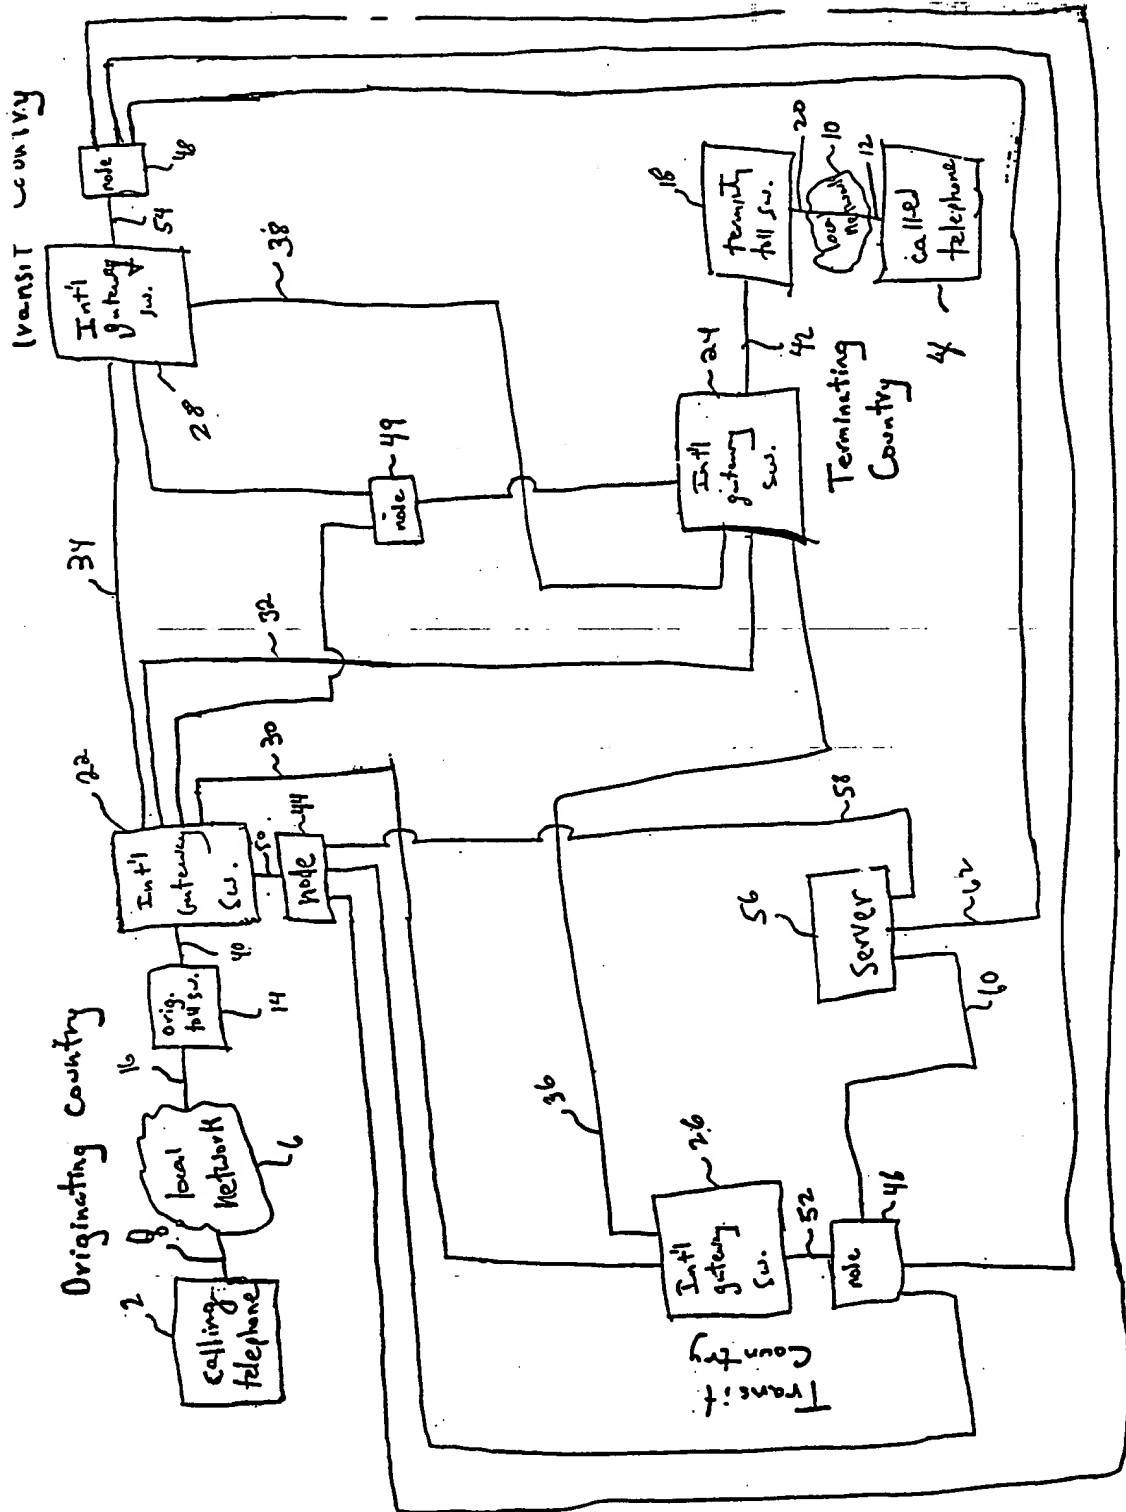 Originating Country
2
calling
telephone
8
local
network
6
16
orig.
toll sw.
14
40
22
Int'l
gateway
sw.
50
44
node
34
32
30
Transit Country
Int'l
gateway
sw.
28
54
node
48
38
49
node
24
Int'l
gateway
sw.
42
Terminating
Country
18
toll sw.
20
local
network
10
12
called
telephone
4
36
26
Int'l
gateway
sw.
52
node
46
Transit
Country
56
Server
58
62
60